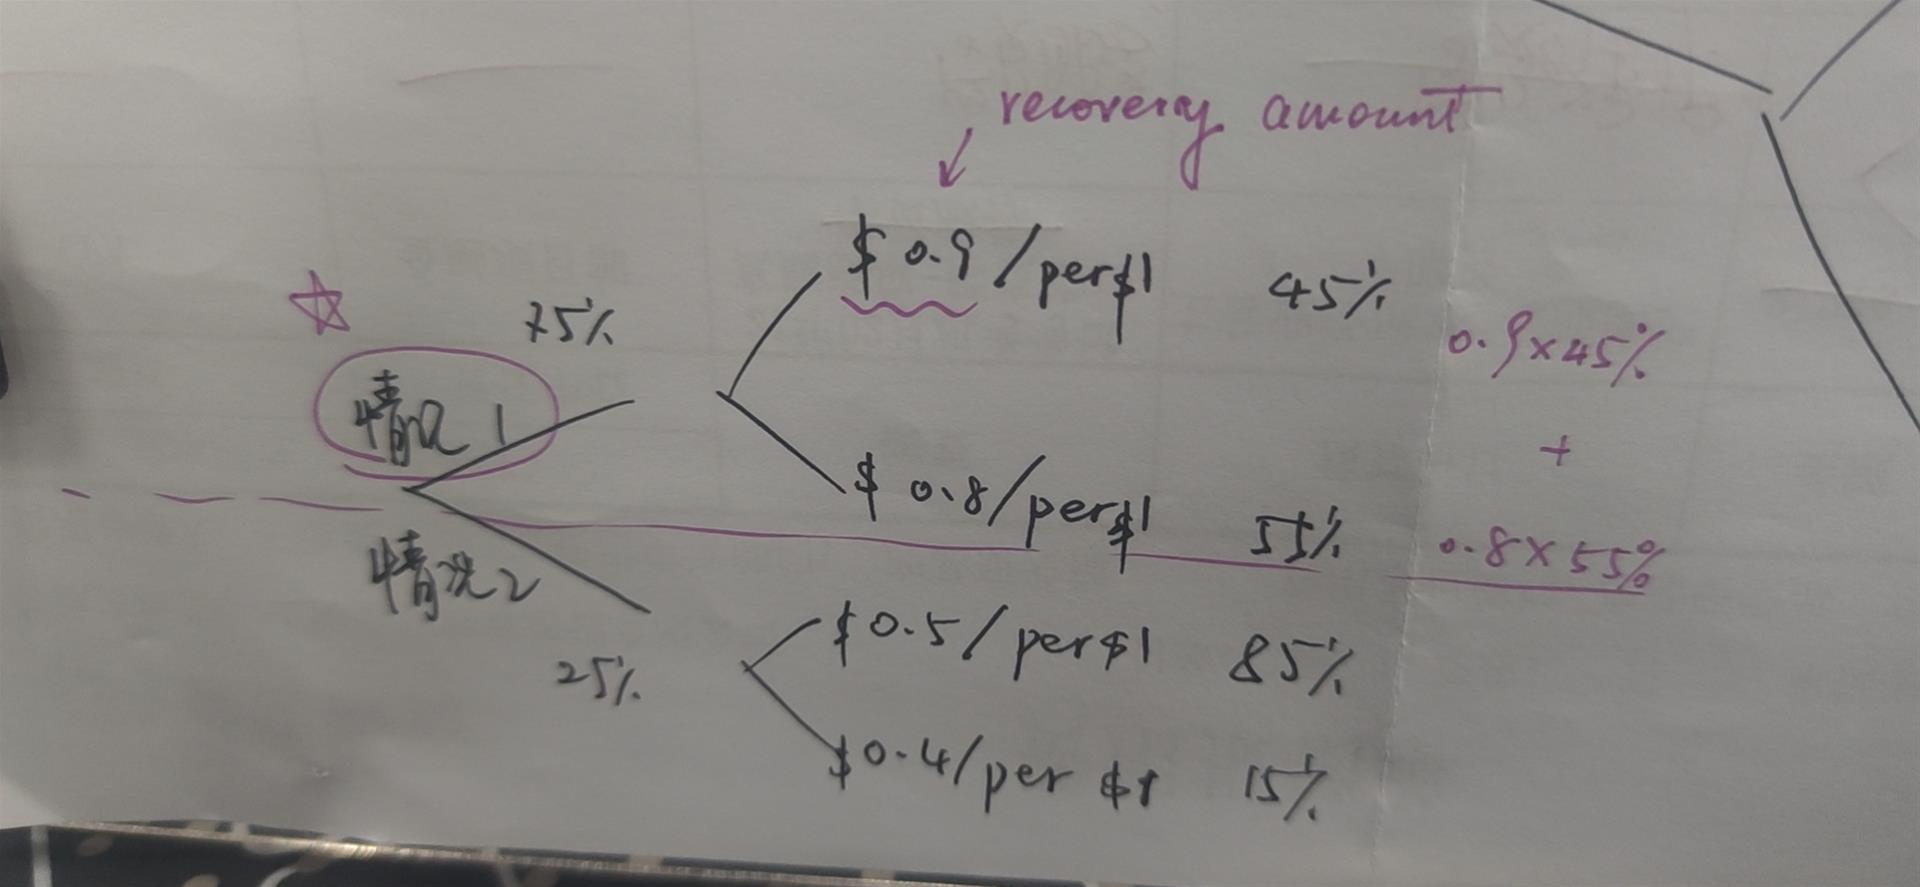 recovery amount
$ 0.9 / per $1 45%
75%
0.9 × 45%
情况 1
+
$ 0.8 / per $1 55%
0.8 × 55%
情况 2
$ 0.5 / per $1 85%
25%
$ 0.4 / per $1 15%